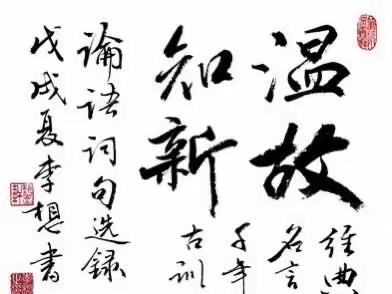 温故
知新
经典
名言
千年
古训
论语词句选录
戊戌夏李想书